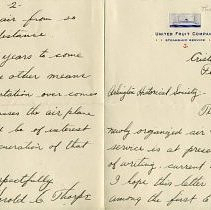 -2-
air from so
distance
years to come
other means
tation over comes
uses the air plane
ld be of interest
neration of that
pectfully
rold C. Thorpe
UNITED FRUIT COMPANY
STEAMSHIP SERVICE
Crist
Arlington Historical Society-
Th
newly organized air
service is at presen
of writing. current
I hope this letter
among the first to